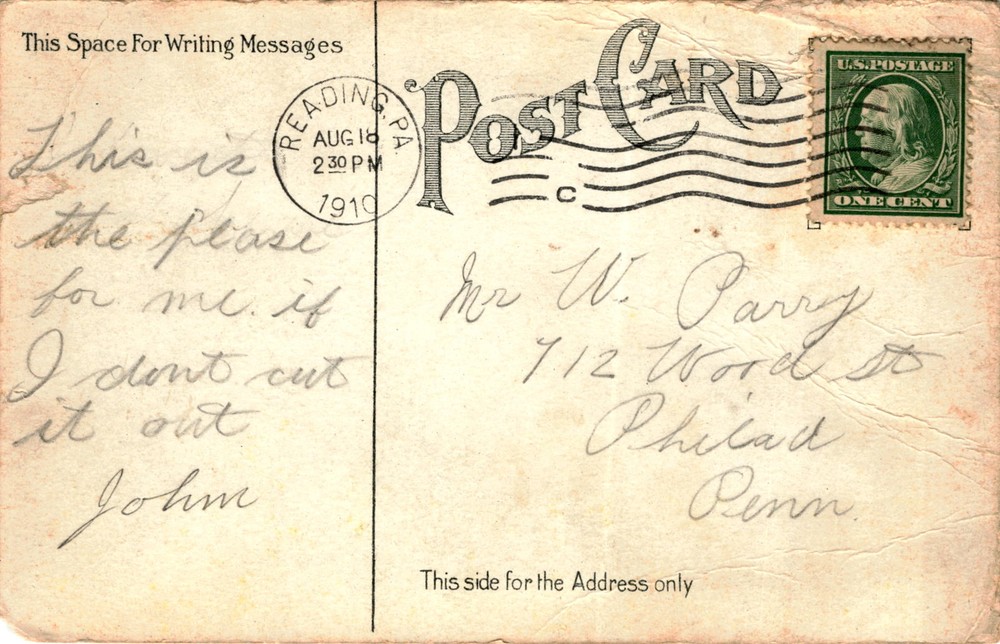 This Space For Writing Messages
POST CARD
READING, PA.
AUG 18
2 30 PM
1910
C
U.S. POSTAGE
ONE CENT
This is
the please
for me if
I dont cut
it out
John
Mr W. Parry
712 Wood St
Philad
Penn.
This side for the Address only